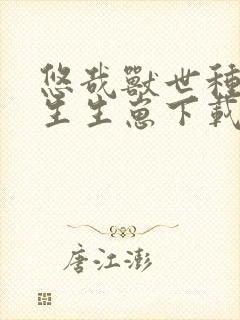 悠哉獸世種
生生崽下載
唐江澎